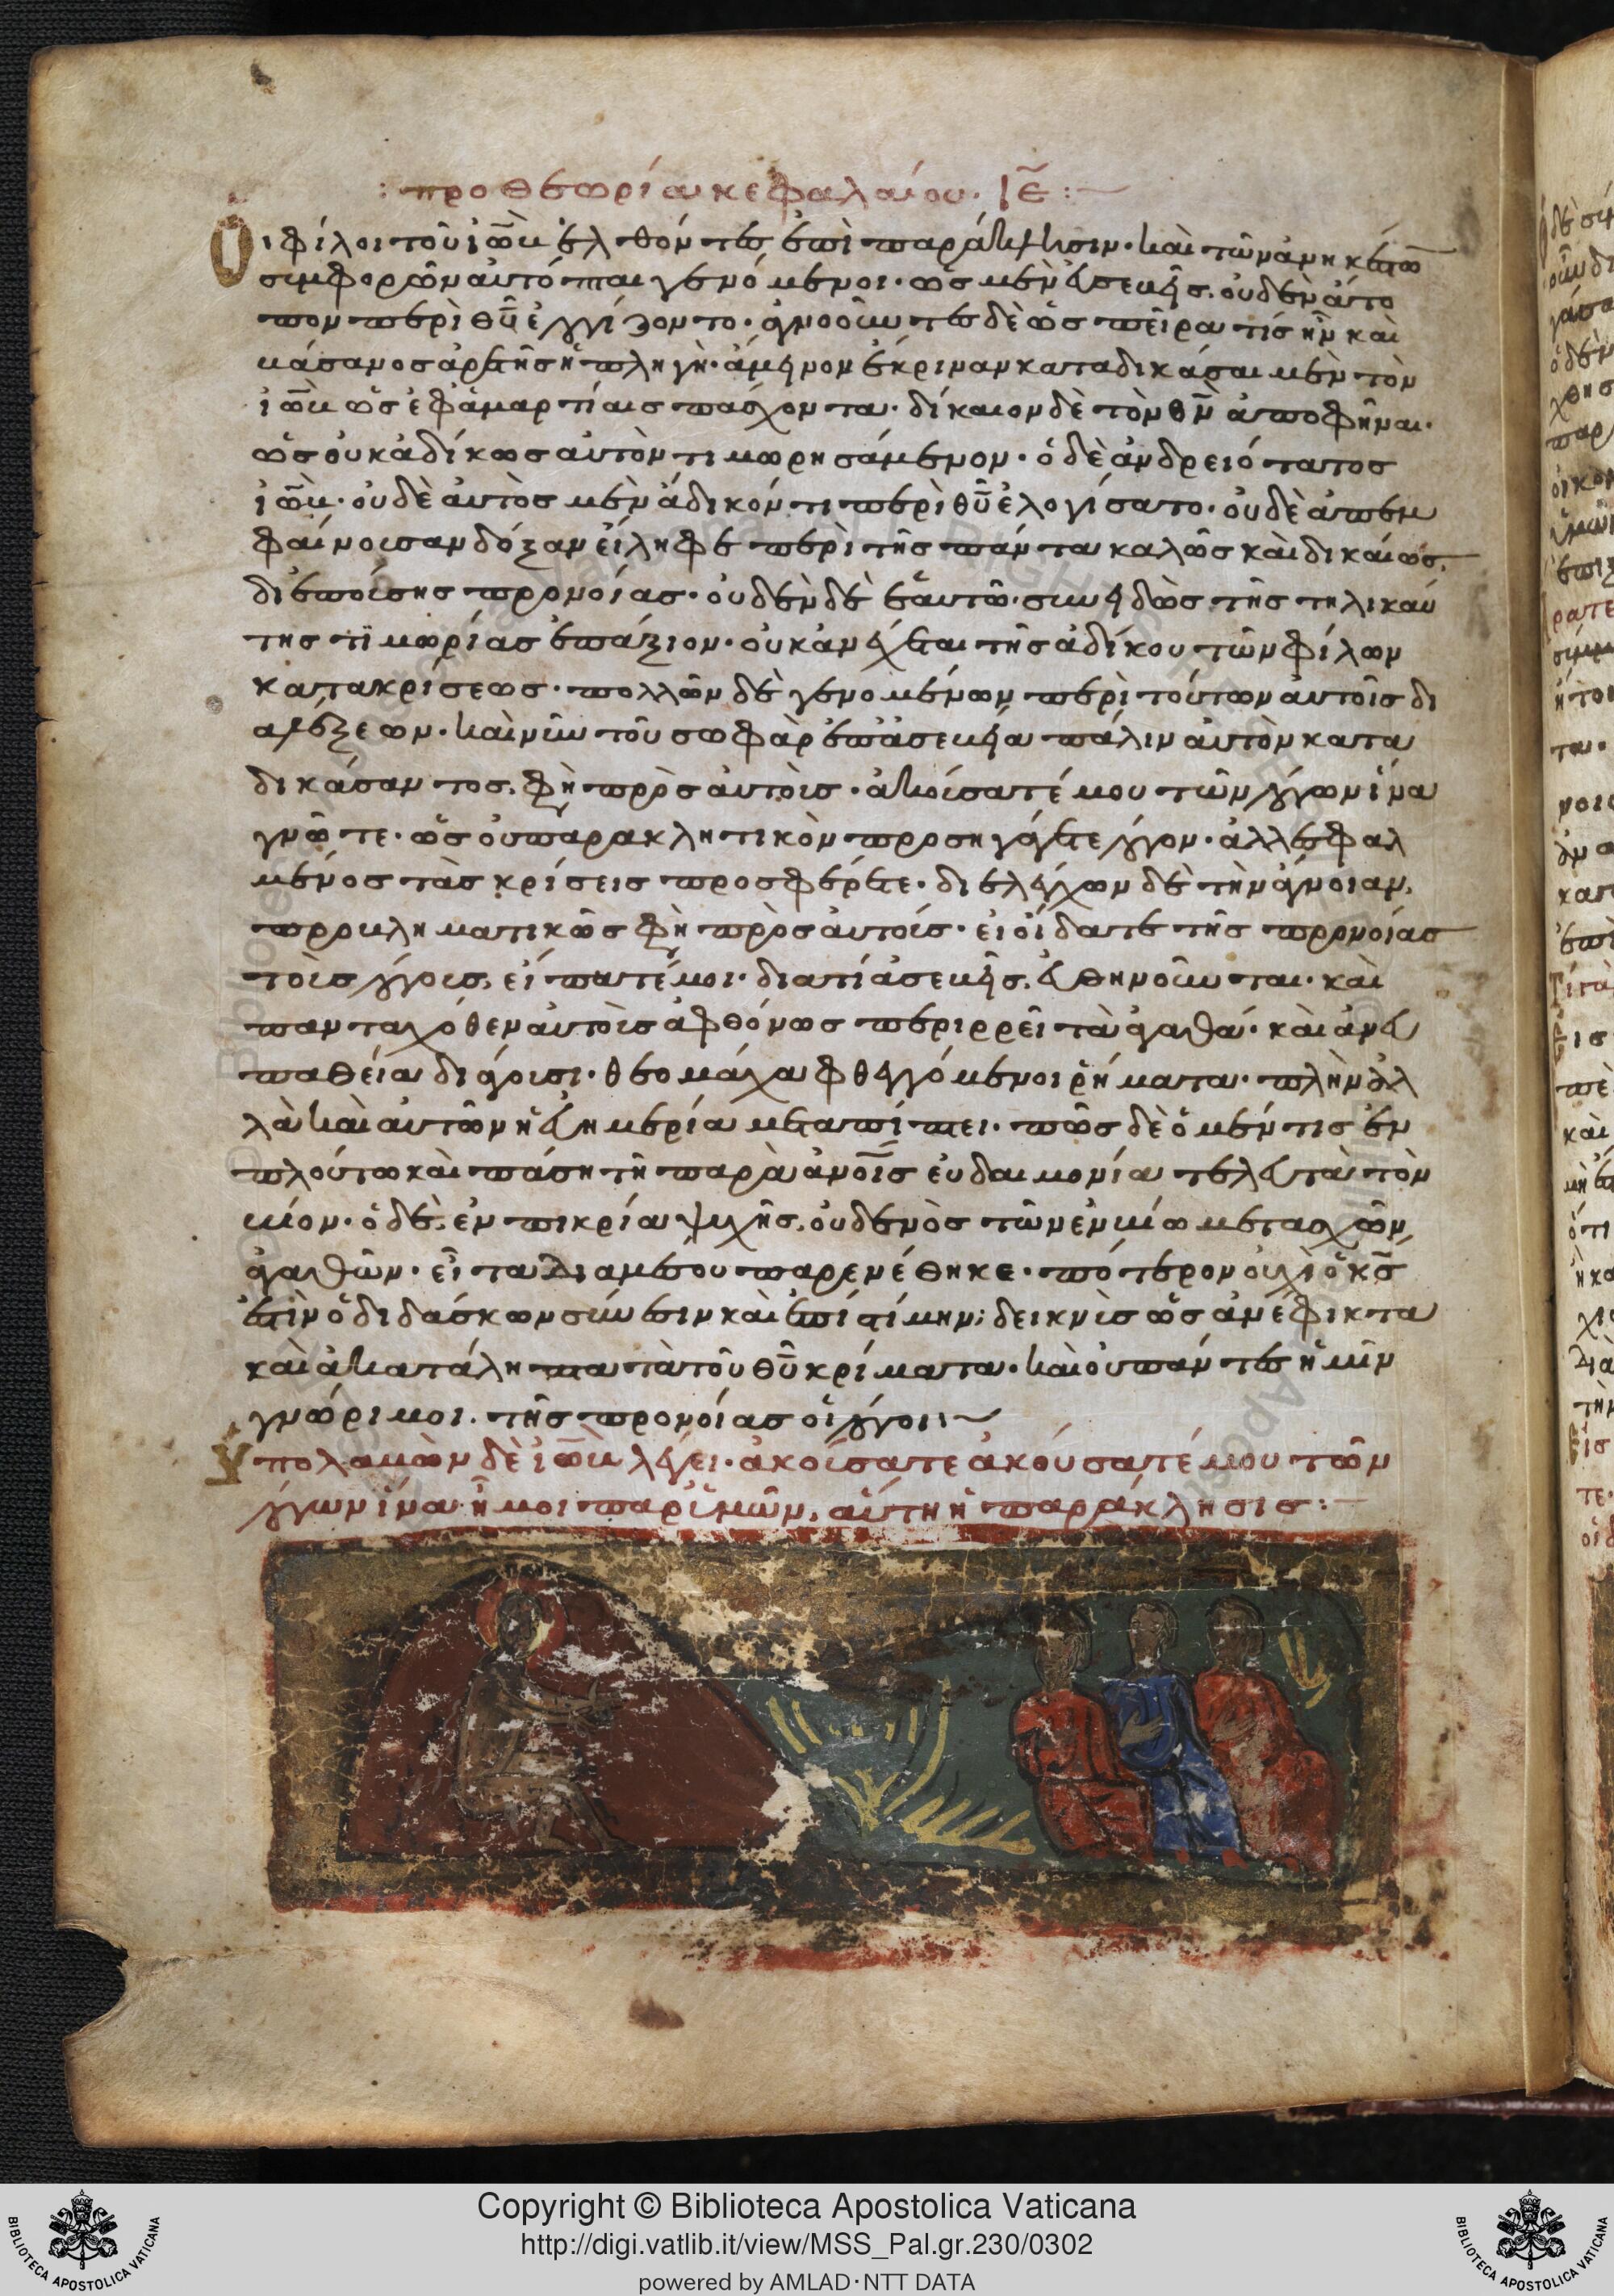 : προθεωρία κεφαλαίου · ιε :
Οἱ φίλοι τοῦ ἰὼβ ἐλθόντες ἐπὶ παράκλησιν · καὶ τῶν ἀνηκέστων
συμφορῶν αὐτόπται γενόμενοι · ὡς μὲν εὐσεβεῖς, οὐδὲν ἄτο
πον περὶ θῦ ἐλογίζοντο · ἀγνοοῦντες δὲ ὡς πεῖρα τίς ἦν καὶ
βάσανος ἀρετῆς ἡ πληγὴ · ἄμεινον ἔκριναν καταδικάσαι μὲν τὸν
ἰὼβ ὡς ἐφ ἁμαρτίαις πάσχοντα · δίκαιον δὲ τὸν θν ἀποφῆναι ·
ὡς οὐκ ἀδίκως αὐτὸν τιμωρησάμενον · ὁ δὲ ἀνδρειότατος
ἰὼβ · οὐδὲ αὐτὸς μὲν ἄδικόν τι περὶ θῦ ἐλογίσατο · οὐδὲ ἀπεμ
φαίνουσαν δόξαν εἴληφε περὶ τῆς πάντα καλῶς καὶ δικαίως,
διεπούσης προνοίας · οὐδὲν δὲ ἑαυτῶ συνειδὼς τῆς τηλικαύ
της τιμωρίας ἐπάξιον · οὐκ ἀνέχεται τῆς ἀδίκου τῶν φίλων
κατακρίσεως · πολλῶν δὲ γενομένων περὶ τούτων αὐτοῖς δι
αλέξεων · καὶ νῦν τοῦ σωφὰρ ἐπ ἀσεβεία πάλιν αὐτὸν κατα
δικάσαντος, φη πρὸς αὐτοὺς · ἀκούσατέ μου τῶν λόγων ἵνα
γνῶτε · ὡς οὐ παρακλητικὸν προσηγάγετε λόγον · ἀλλ ἐσφαλ
μένος τὰς κρίσεις προσφέρετε · διελέγχων δὲ τὴν ἄγνοιαν,
προβληματικῶς φη πρὸς αὐτοὺς · εἰ οἴδατε τῆς προνοίας
τοὺς λόγους, εἴπατέ μοι · διατί ἀσεβεῖς, εὐθηνοῦνται · καὶ
πανταχόθεν αὐτοῖς ἀφθόνως περιρρεῖ τὰ ἀγαθά · καὶ ἀνευ
παθεία διάγουσι · θεομάχα φθεγγόμενοι ῥήματα · πλὴν ἀλ
λὰ καὶ αὐτῶν ἡ εὐημερία μεταπίπτει · πῶς δὲ ὁ μέν τις ἐν
πλούτω καὶ πάση τῆ παρὰ ἀνοις εὐδαιμονία τελευτὰ τὸν
βίον · ὁ δὲ, ἐν πικρία ψυχῆς, οὐδενὸς τῶν ἐν βίω μετασχῶν,
ἀγαθῶν · εἶτα διαμέσου παρενέθηκε · πότερον οὐχὶ ὁ κς
ἐστὶν ὁ διδάσκων σύνεσιν καὶ ἐπιστήμην; δεικνὺς ὡς ἀνέφικτα
καὶ ἀκατάληπτα τὰ τοῦ θῦ κρίματα · καὶ οὐ πάντες ἡμῖν
γνώριμοι, τῆς προνοίας οἱ λόγοι :~
Ὑπολαβὼν δὲ ἰὼβ λέγει · ἀκούσατε ἀκούσατέ μου τῶν
λόγων ἵνα ἦ μοι παρ ὑμῶν, αὕτη ἡ παράκλησις :
Copyright © Biblioteca Apostolica Vaticana
http://digi.vatlib.it/view/MSS_Pal.gr.230/0302
powered by AMLAD·NTT DATA
BIBLIOTECA APOSTOLICA VATICANA
BIBLIOTECA APOSTOLICA VATICANA